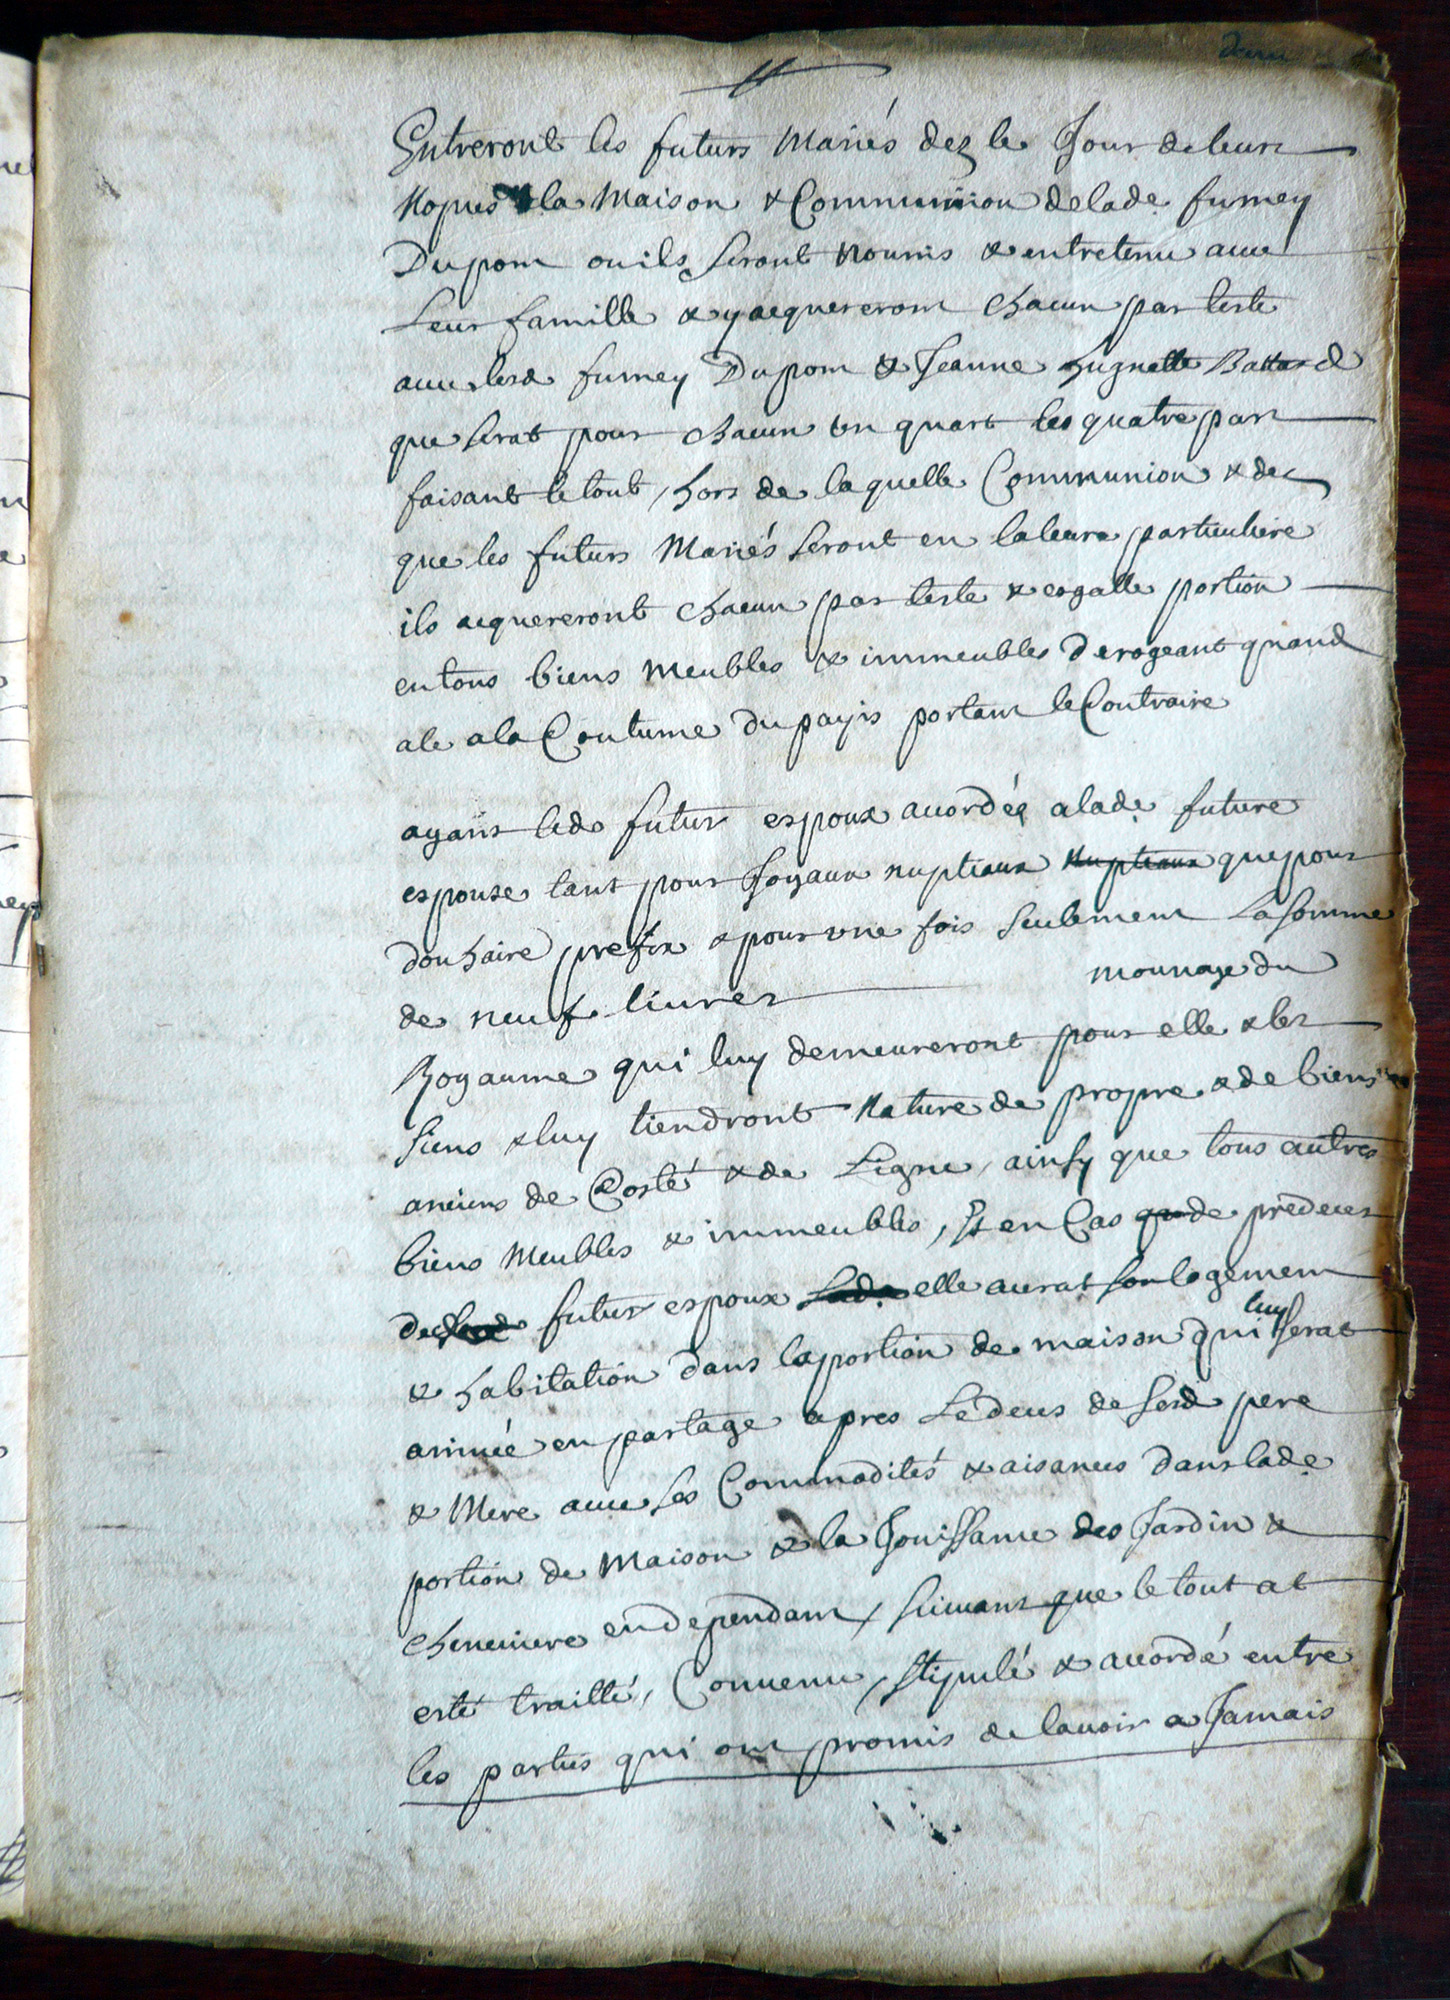 Entreront les futurs Mariés dez le Jour de leurs
Nopces & la Maison & Communion de lade. furney
Dupont ou ils seront nourris & entretenu avec
Leur famille & y acquereront chacun par teste
avec lesd furney Dupont & Jeanne huguette Battard
que serat pour chacun un quart les quatre part
faisant le tout, hors de laquelle Communion & dez
que les futurs Mariés seront en la leurs particuliere
ils acquereront chacun par teste & esgalle portion
en tous biens meubles & immeubles Derogeant quand
a ce a la Coutume du payis portant le Contraire
ayant led. futur espoux accordée a lade. future
espouse tant pour Joyaux nuptiaux nuptiaux que pour
douhaire prefix & pour une fois seulement La somme
de neuf livres monnoye du
Royaume qui luy demeureront pour elle & les
siens & luy tiendront Nature de propre & de biens
anciens de Costé & de Ligne, ainsy que tous autres
biens Meubles & immeubles, Et en Cas que de predeces
de futur espoux Lade. elle aurat son logement
& habitation dans la portion de maison qui luy serat
arrivée en partage apres Le deces de sesd pere
& Mere avec les Commodités & aisances dans lade.
portion de Maison & la Jouissance des Jardin &
cheneviere en dependant, suivant que le tout at
esté traitté, Convenu, stipulé & accordé entre
les parties qui ont promis de lavoir a Jamais